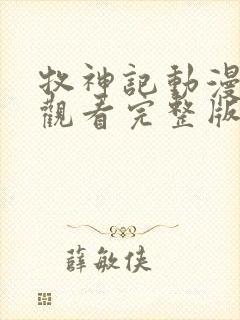 牧神記動漫
觀看完整版
薛敏俠